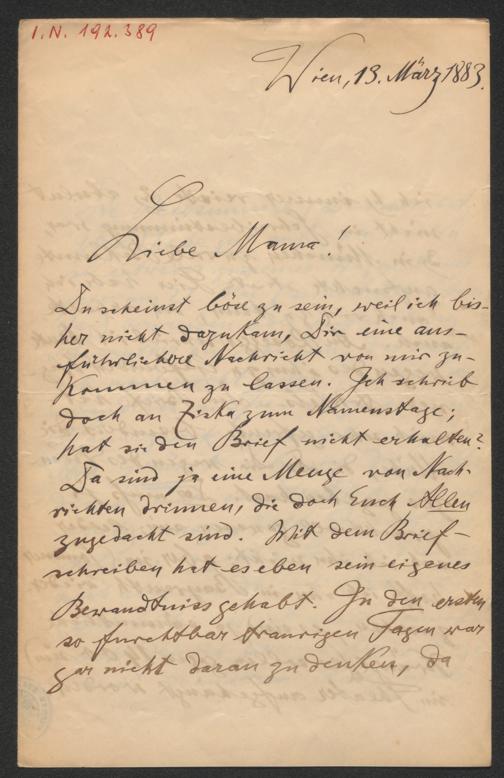 I. N. 192.389
Wien, 13. März 1883.
Liebe Mama!
Du scheinst böse zu sein, weil ich bis-
her nicht dazukam, Dir eine aus-
führlichere Nachricht von mir zu-
kommen zu lassen. Ich schrieb
doch an Ziska zum Namenstage;
hat sie den Brief nicht erhalten?
Da sind ja eine Menge von Nach-
richten drinnen, die doch Euch Allen
zugedacht sind. Mit dem Brief-
schreiben hat es eben sein eigenes
Bewandtniss gehabt. In den ersten
so furchtbar traurigen Tagen war
gar nicht daran zu denken, da